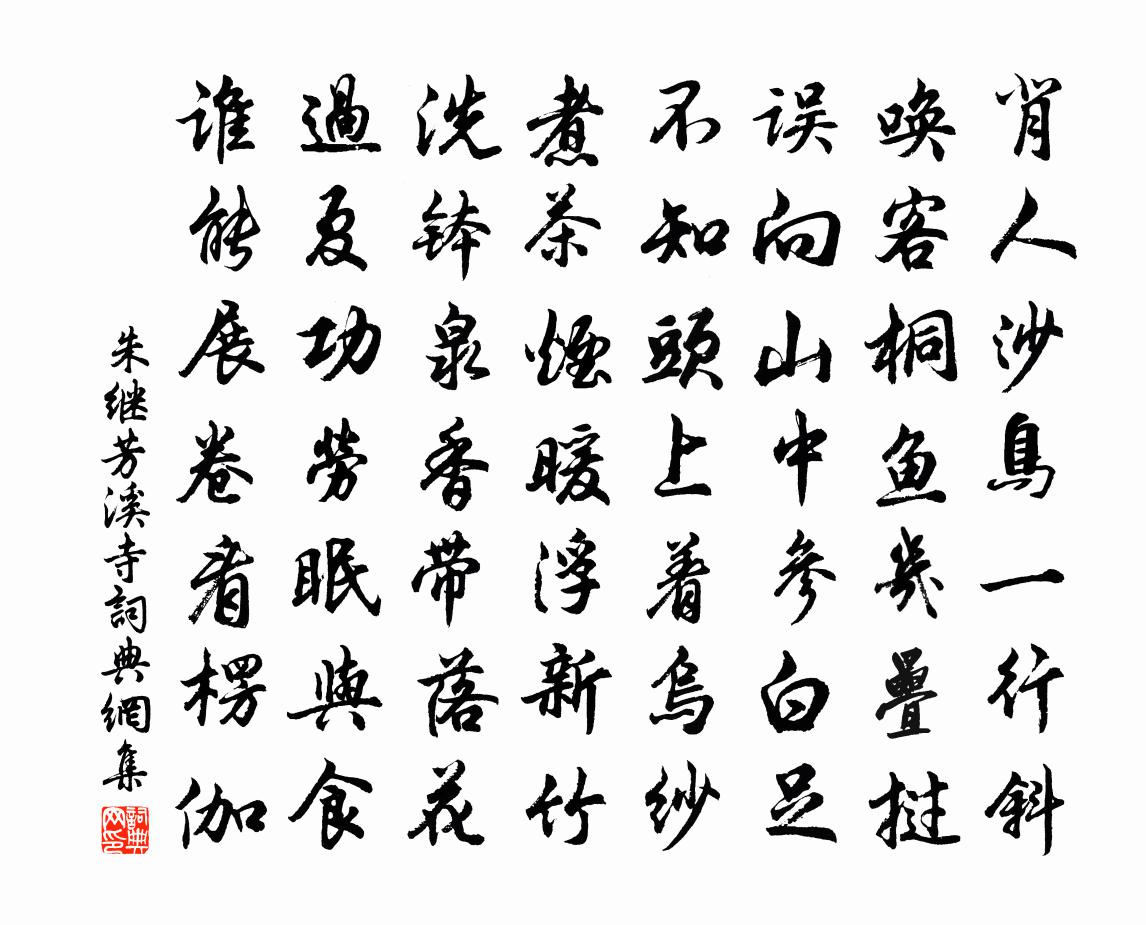 肖人沙鳥一行斜
唤客桐鱼幾疊撻
误向山中參白足
不知頭上着烏紗
煮茶煙暖浮新竹
洗钵泉香帶落花
過夏功勞眠與食
谁能展卷看楞伽
朱继芳溪寺詞典網集
詞典网印